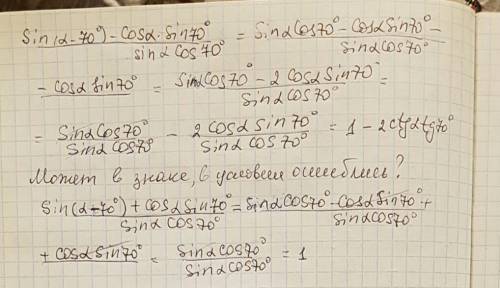 sin(α-70°) - cosα·sin70° / sinα cos70° = sinα cos70° - cosα sin70° - / sinα cos70°
- cosα sin70° = sinα cos70° - 2 cosα sin70° / sinα cos70° =
= sinα cos70° / sinα cos70° - 2 cosα sin70° / sinα cos70° = 1 - 2ctgα tg70°
Может в знаке, в условии ошиблись?
sin(α-70°) + cosα sin70° / sinα cos70° = sinα cos70° - cosα sin70° + / sinα cos70°
+ cosα sin70° = sinα cos70° / sinα cos70° = 1